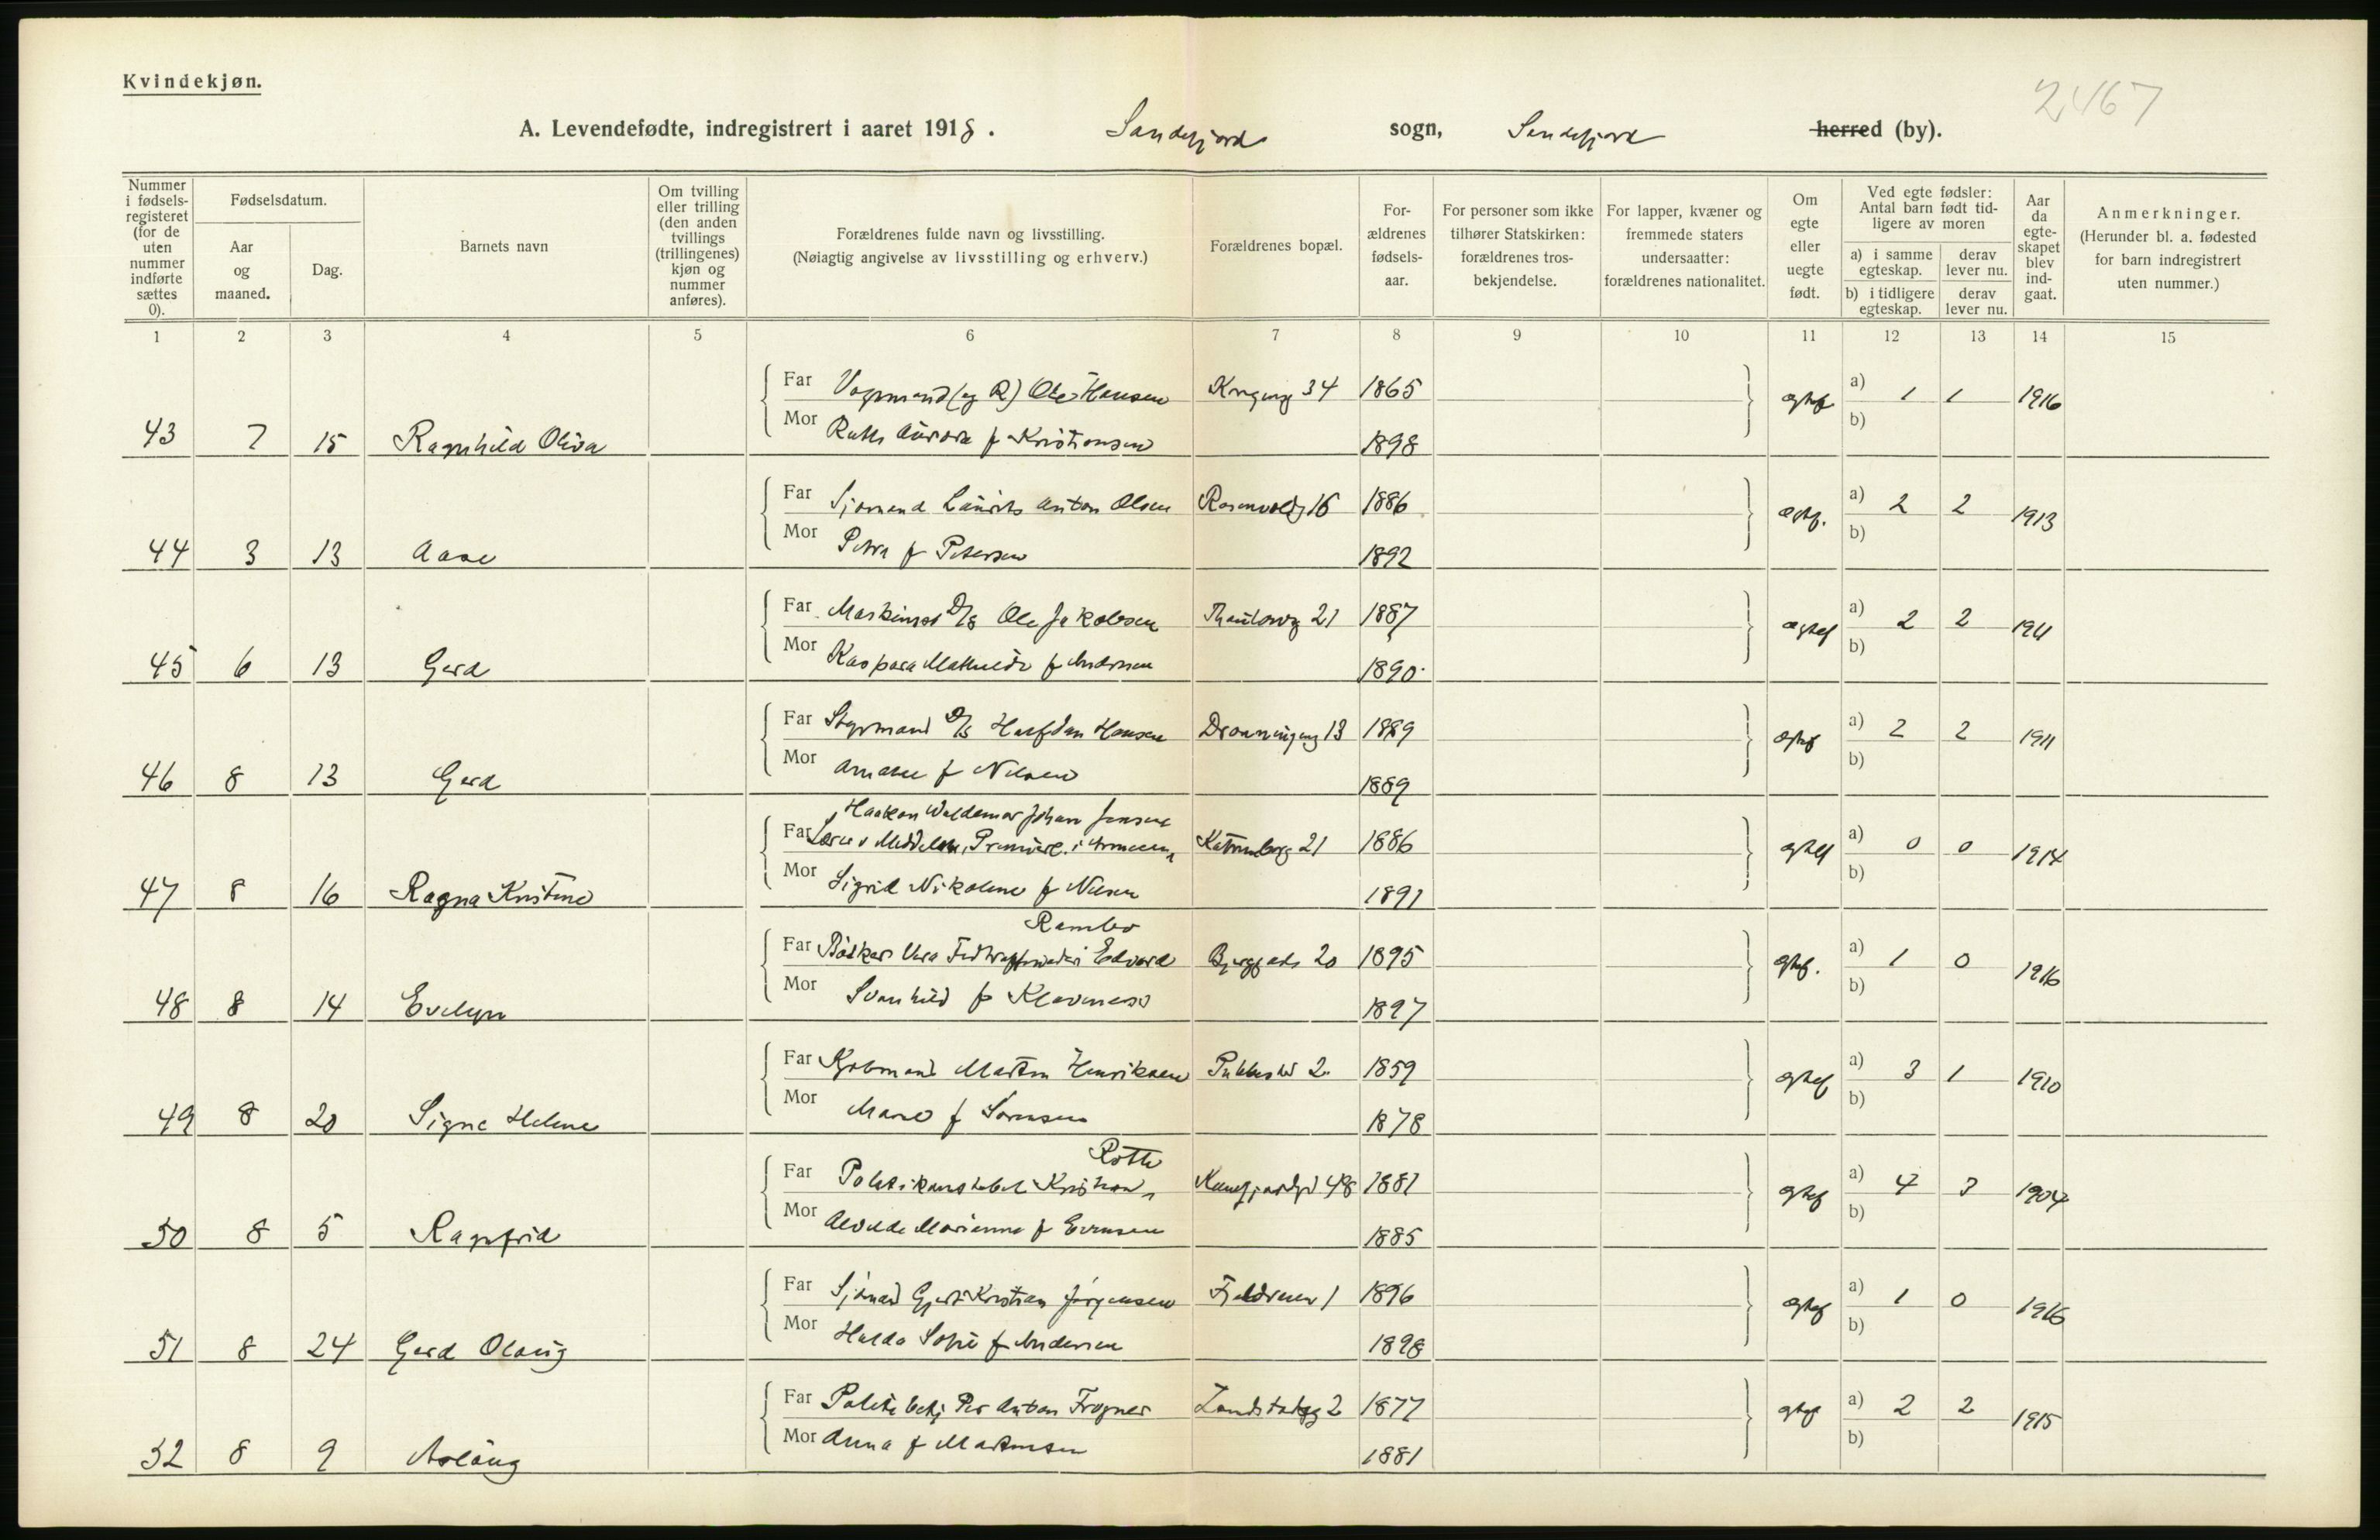 Kvindekjøn.
2467
A. Levendefødte, indregistrert i aaret 1918. Sandefjord sogn, Sandefjord herred (by).
Nummer i fødselsregisteret (for de uten nummer indførte sættes 0).
Fødselsdatum.
Aar og maaned.
Dag.
Barnets navn
Om tvilling eller trilling (den anden tvillings (trillingenes) kjøn og nummer anføres).
Forældrenes fulde navn og livsstilling.
(Nøiagtig angivelse av livsstilling og erhverv.)
Forældrenes bopæl.
For-ældrenes fødsels-aar.
For personer som ikke tilhører Statskirken: forældrenes tros-bekjendelse.
For lapper, kvæner og fremmede staters undersaatter: forældrenes nationalitet.
Om egte eller uegte født.
Ved egte fødsler: Antal barn født tid-ligere av moren
a) i samme egteskap.
derav lever nu.
b) i tidligere egteskap.
derav lever nu.
Aar da egte-skapet blev ind-gaat.
Anmerkninger.
(Herunder bl. a. fødested for barn indregistrert uten nummer.)
1 2 3 4 5 6 7 8 9 10 11 12 13 14 15
Far Ole Hansen 34 1865 a) 1 1 1916
43 7 15 Ragnhild Oliva Mor Ruth Aurora f Kristiansen 1898 b)
Far Sjømand Laurits Anton Olsen 1886 a) 2 2 1913
44 3 13 Aase Mor Petra f Petersen 1892 b)
Far Maskinist D/S Ole Jakobsen 21 1887 a) 2 2 1911
45 6 13 Gerd Mor Kaspara Mathilde f Andersen 1890 b)
Far Styrmand D/S Halfdan Hansen Dronningensg 13 1889 a) 2 2 1911
46 8 13 Gerd Mor f Nilsen 1889 b)
Haakon Waldemar Johan Jensen
Far 21 1886 a) 0 0 1914
47 8 16 Ragna Kristine Mor Sigrid Nikoline f Nilsen 1891 b)
Rambo
Far Bødker Edvard 20 1895 a) 1 0 1916
48 8 14 Evelyn Mor Svanhild f Klavness 1897 b)
Far Kjøbmand Martin Henriksen 2 1859 a) 3 1 1910
49 8 20 Signe Helene Mor f Sørensen 1878 b)
Far Politikonstabel Kristian 48 1881 a) 4 3 1904
50 8 5 Ragnfrid Mor Marianne f Evensen 1885 b)
Far Sjømand Kristian Jørgensen 1 1896 a) 1 0 1916
51 8 24 Gerd Olaug Mor Hulda Sofie f Andersen 1898 b)
Far Politibetj Per Anton Frogner 2 1877 a) 2 2 1915
52 8 9 Aslaug Mor Anna f Martinsen 1881 b)